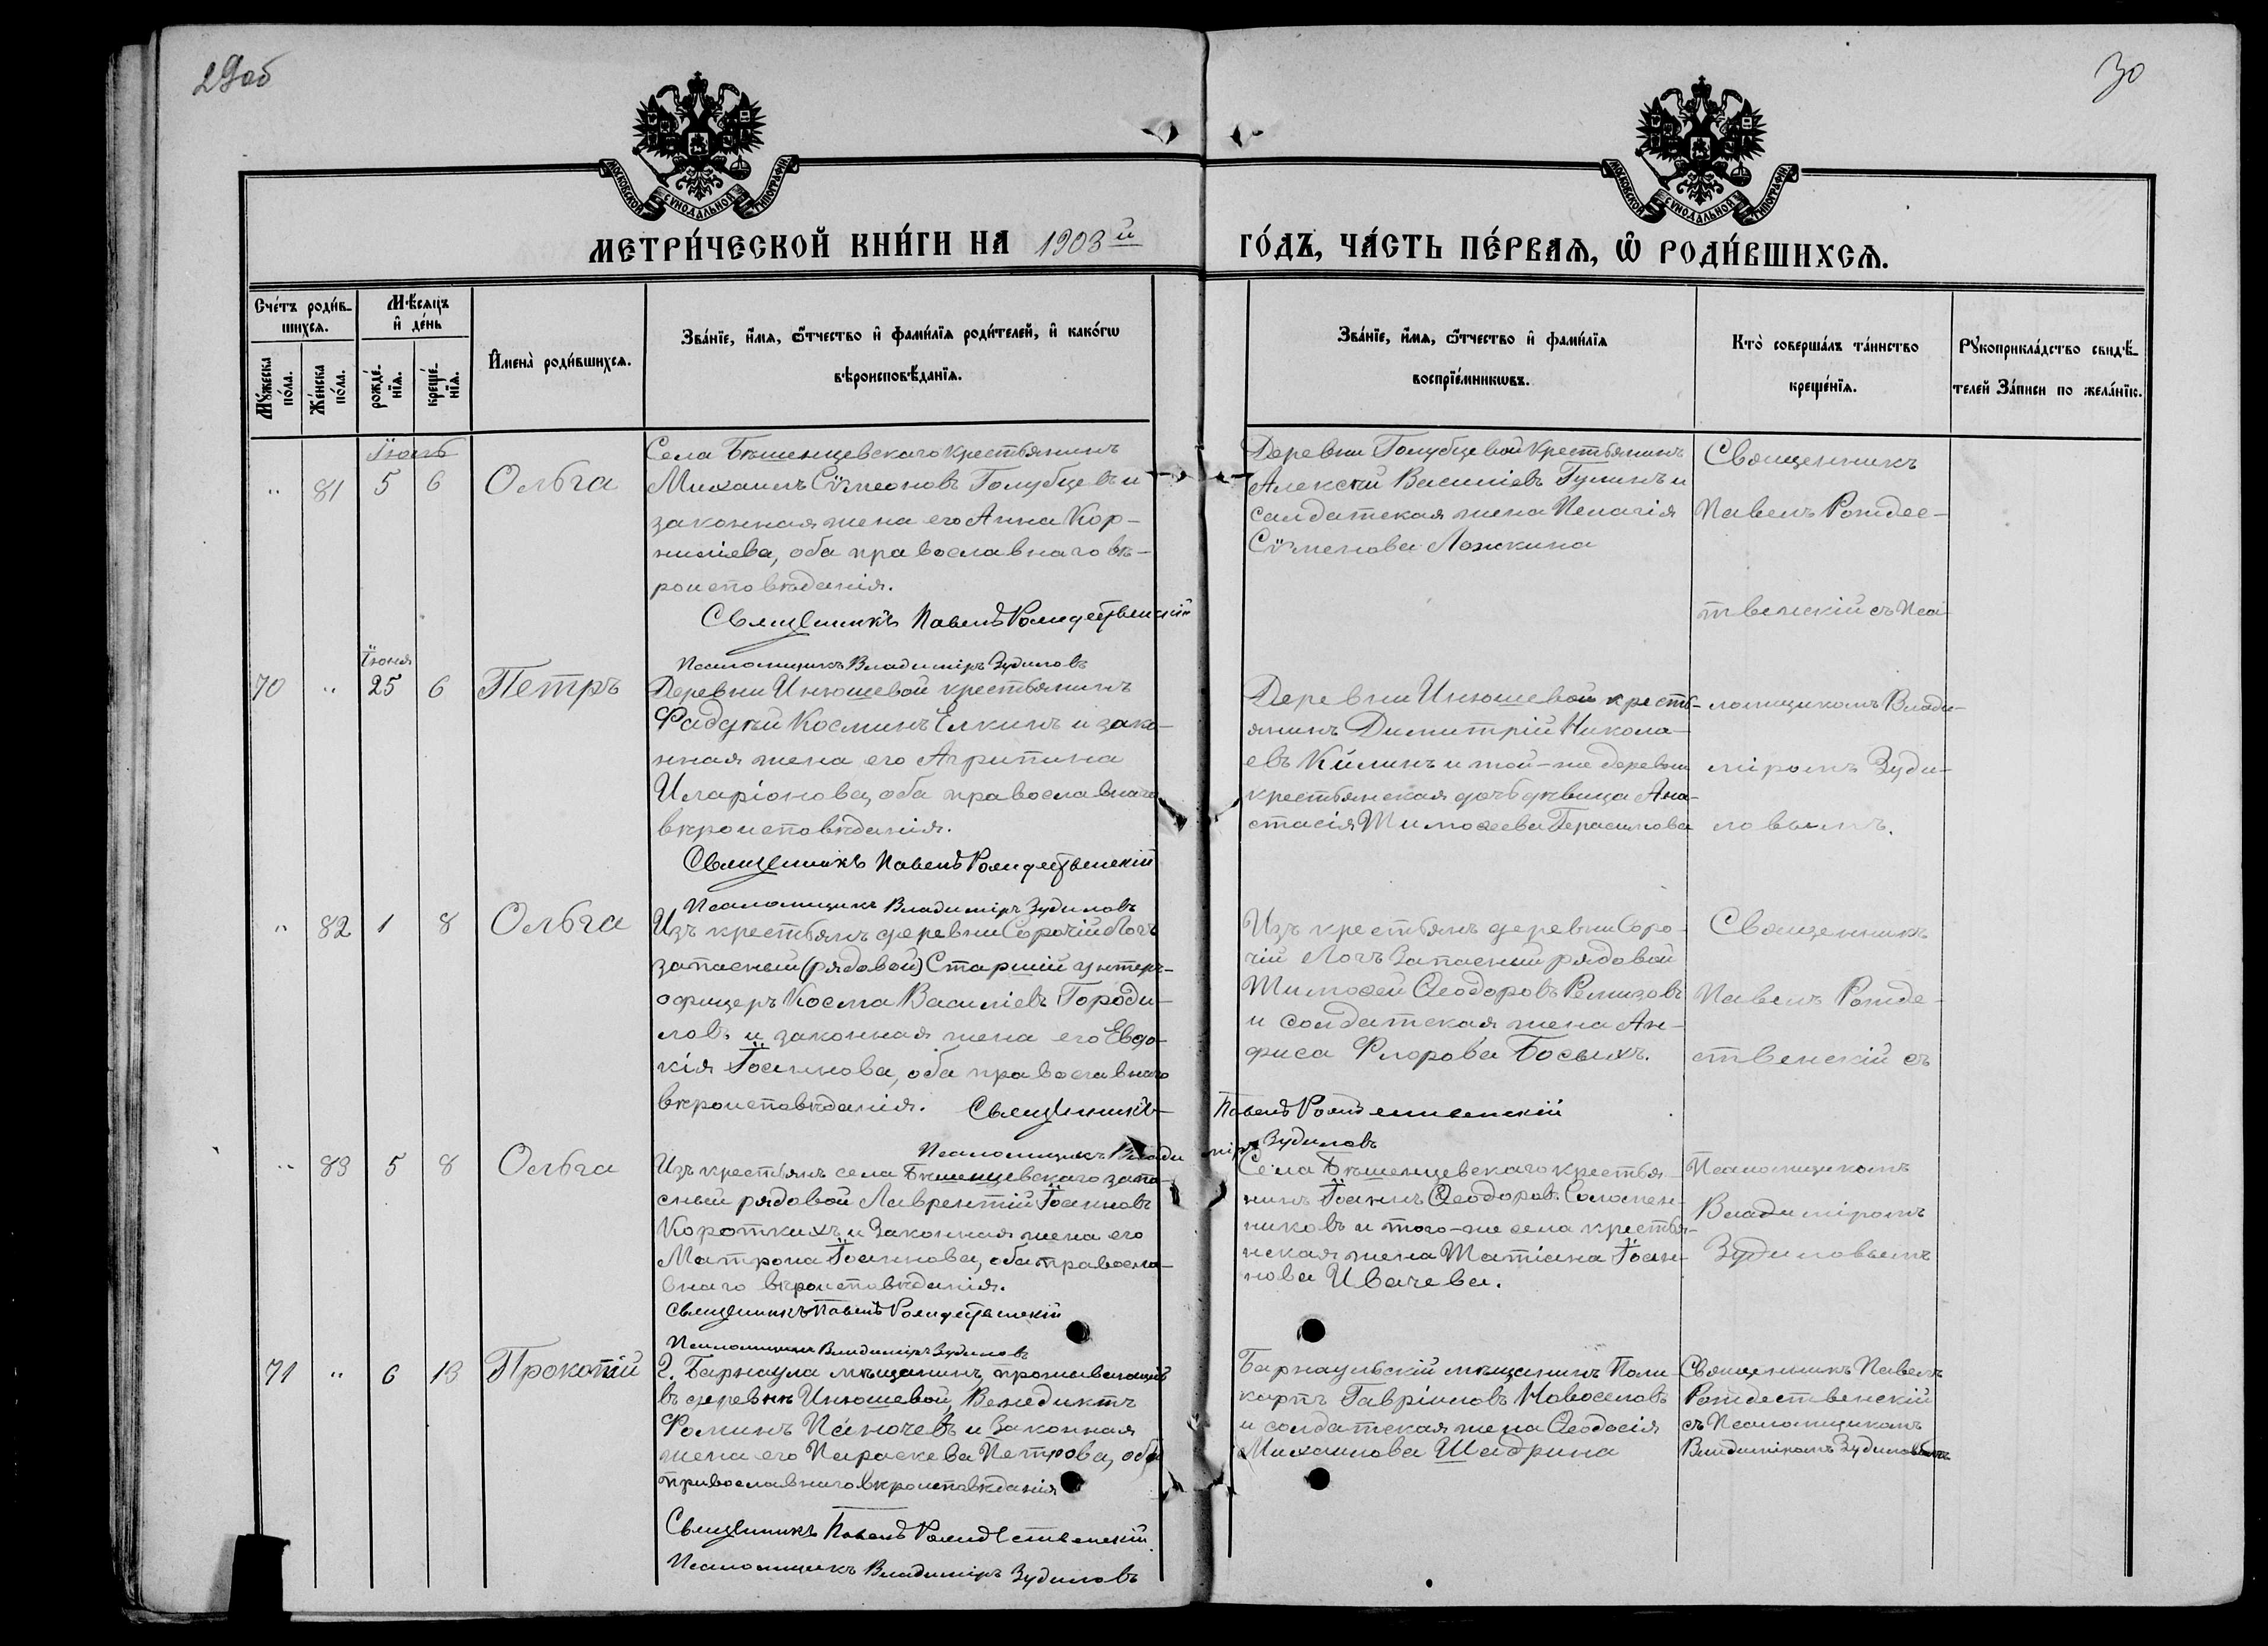 29об
30
МОСКОВСКОЙ СѴНОДАЛЬНОЙ ТИПОГРАФІИ
МОСКОВСКОЙ СѴНОДАЛЬНОЙ ТИПОГРАФІИ
МЕТРИ́ЧЕСКОЙ КНИ́ГИ НА 1903й
ГО́ДЪ, ЧА́СТЬ ПЕ́РВАѦ, Ѽ РОДИ́ВШИХСѦ.
Сче́тъ роди́в-
шихсѧ.
Мꙋ́жеска
по́ла.
Же́нска
по́ла.
Мѣ́сѧцъ
и҆ де́нь
рожде́-
нїѧ.
креще́-
нїѧ.
И҆мена̀ роди́вшихсѧ.
Зва́нїе, и҆́мѧ, ѻ҆́тчество и҆ фами́лїѧ роди́телей, и҆ како́гѡ
вѣроисповѣ́данїѧ.
Зва́нїе, и҆́мѧ, ѻ҆́тчество и҆ фами́лїѧ
воспрїе́мникѡвъ.
Кто̀ соверша́лъ та́инство
креще́нїѧ.
Рꙋкоприкла́дство свидѣ́-
телей За́писи по жела́нїю.
Іюнь
" 81 5 6 Ольга
Села Бѣшенцевскаго крестьянинъ
Михаилъ Сѵмеоновъ Голубцевъ и
законная жена его Анна Кор-
нилiева, оба православнаго вѣ-
роисповѣданія.
Священникъ Павелъ Рождественскій
Псаломщикъ Владиміръ Зудиловъ
Деревни Голубцевой крестьянинъ
Алексѣй Василіевъ Гулинъ и
салдатская жена Пелагія
Сѵменова Ложкина
Священникъ
Павелъ Рождес-
твенскій съ Пса-
Іюня
70 " 25 6 Петръ
Деревни Инюшевой крестьянинъ
Фаддѣй Косминъ Елкинъ и зако-
нная жена его Агрипина
Иларіонова, оба православнаго
вѣроисповѣданія.
Священникъ Павелъ Рождественскій
Псаломщикъ Владиміръ Зудиловъ
Деревни Инюшевой кресть-
янинъ Димитрій Никола-
евъ Килинъ и той-же деревни
крестьянская дочь дѣвица Ана-
стасія Тимоѳеева Герасимова
ломщикомъ Влади-
міромъ Зуди-
ловымъ.
" 82 1 8 Ольга
Изъ крестьянъ деревни Сорочій Логъ
запасный (рядовой) Старшій унтеръ-
офицеръ Косма Василіевъ Городи-
ловъ и законная жена его Евдо-
кія Іоаннова, оба православнаго
вѣроисповѣданія. Священникъ Павелъ Рождественскій
Псаломщикъ Владиміръ Зудиловъ
Изъ крестьянъ деревни Соро-
чій Логъ Запасный рядовой
Тимоѳей Ѳеодоровъ Ремизовъ
и солдатская жена Ан-
фиса Флорова Босыхъ.
Священникъ
Павелъ Рожде-
ственскій съ
" 83 5 8 Ольга
Изъ крестьянъ села Бѣшенцевскаго запа-
сный рядовой Лаврентій Іоанновъ
Короткихъ и Законная жена его
Матрона Іоаннова, оба правосла-
внаго вѣроисповѣданія.
Священникъ Павелъ Рождественскій
Псаломщикъ Владиміръ Зудиловъ
Села Бѣшенцевскаго крестья-
нинъ Іоаннъ Ѳеодоровъ
никовъ и того-же села крестья-
нская жена Татіана Іоан-
нова Ивачева.
Псаломщикомъ
Владиміромъ
Зудиловымъ
71 " 6 13 Прокопій
Г. Барнаула мѣщанинъ, проживающій
въ деревнѣ Инюшевой, Венедиктъ
Фоминъ и Законная
жена его Параскева Петрова, оба
православнаго вѣроисповѣданія
Священникъ Павелъ Рождественскій.
Псаломщикъ Владиміръ Зудиловъ
Барнаульскій мѣщанинъ Поли-
карпъ Гавріиловъ Новоселовъ
и солдатская жена Ѳеодосія
Михаилова Шадрина
Священникъ Павелъ
Рождественскій
съ Псаломщикомъ
Владиміромъ Зудиловымъ